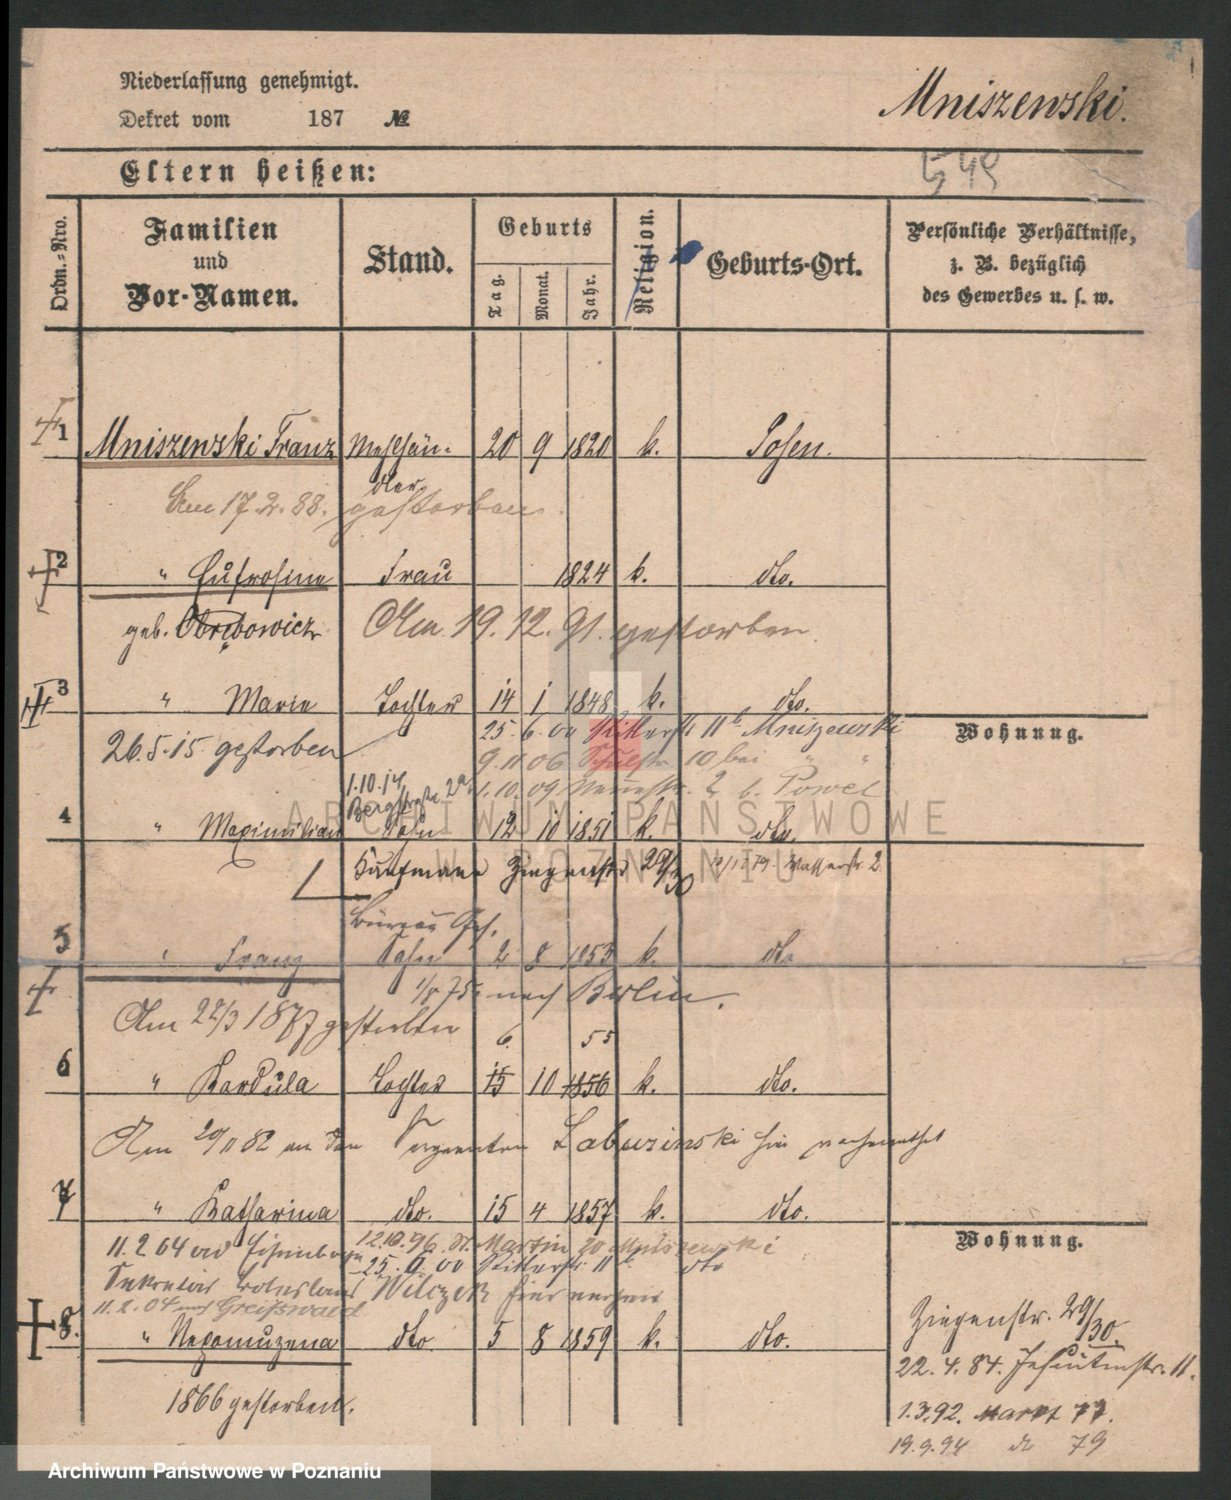 Niederlassung genehmigt.
Dekret vom 187 №
Mniszewski.
Eltern heißen:
549
Ordn.-Nro.
Familien
und
Vor-Namen.
Stand.
Geburts
Tag.
Monat.
Jahr.
Religion.
Geburts-Ort.
Persönliche Verhältnisse,
z. B. bezüglich
des Gewerbes u. s. w.
1 Mniszewski Franz Mehlhän- 20 9 1820 k. Posen.
dler.
Am 17.2.88. gestorben.
2 " Eufrosine Frau 1824 k. dto.
geb. Obrębowicz
Am 19.12.91. gestorben.
3 " Marie Tochter 14 1 1848 k. dto.
Wohnung.
26.5.15. gestorben
25.6.00 Ritterstr 11b Mniszewski
9.11.06 Schulstr. 10 bei " "
1.10.14
Bergstraße 2a
1.10.09 Neuestr. 2 b. Powel
4 " Maximilian Sohn 12 10 1851 k. dto.
Kaufmann Ziegenstr 29/30 Wasserstr 2.
Bureau Geh.
5 " Franz Sohn 2 8 1853 k. dto
1/8 75. nach Berlin.
Am 22/3 1877 gestorben
6. 55
6 " Kordula Tochter 15 10 1856 k. dto.
Am 20/11 82 an den Sergeanten Labuzinski hier verheirathet
7 " Katharina dto. 15 4 1857 k. dto.
Wohnung.
11.2.04 an Eisenbahn
12.10.96. St. Martin 20 Mniszewski
25.6.00 Ritterstr. 11b dto
Sekretär Boleslaus Wilczek hier
11.2.04 nach Greifswald
8. " Nepomuzena dto. 5 8 1859 k. dto.
1866 gestorben.
Ziegenstr. 29/30.
22.4.84. Jesuitenstr. 11.
1.3.92. Markt 77.
19.9.94 do 79
ARCHIWUM PAŃSTWOWE
W POZNANIU
Archiwum Państwowe w Poznaniu